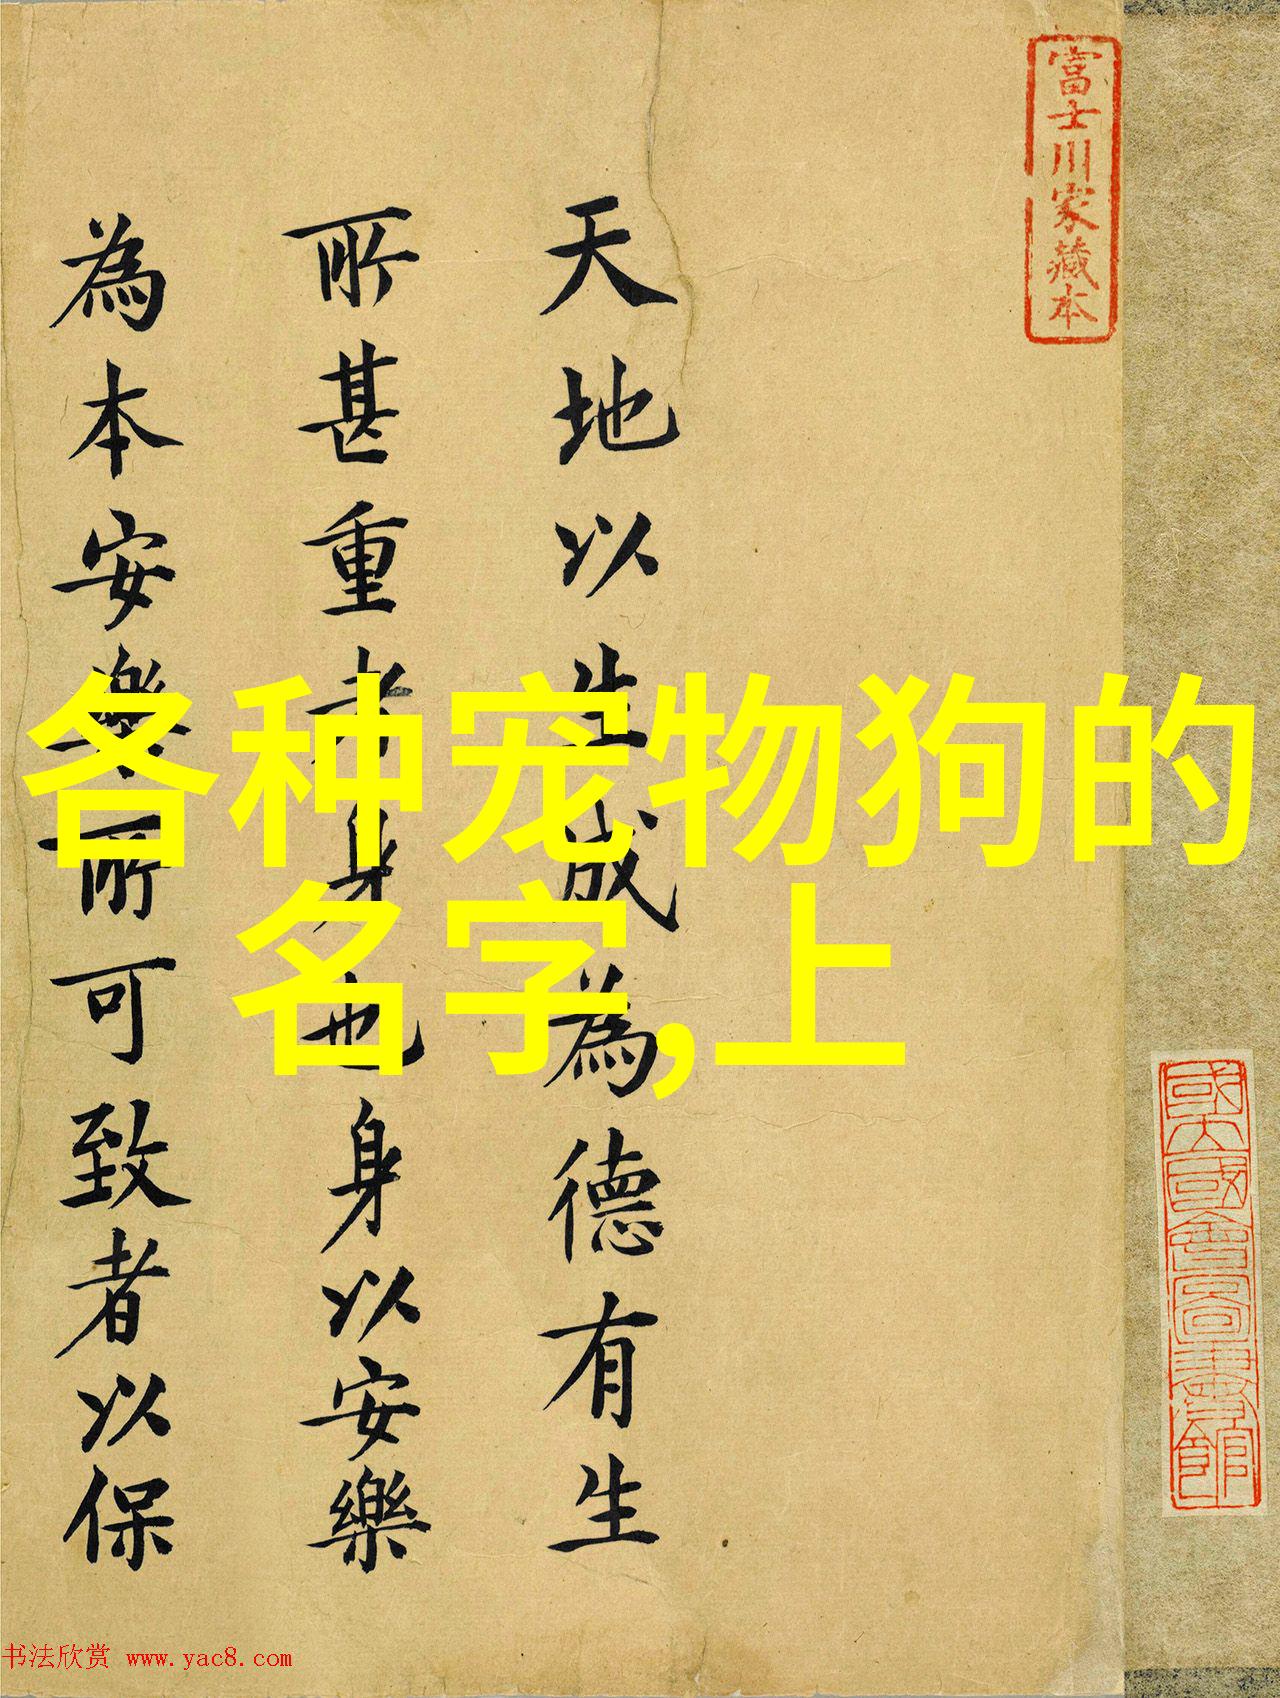 富士川家藏本
國立國會圖書館
天地以生成為德有生
所甚重者身也身以安樂
為本安樂所可致者以保
各种宠物狗的
名字,上
书法欣赏 www.yac8.com